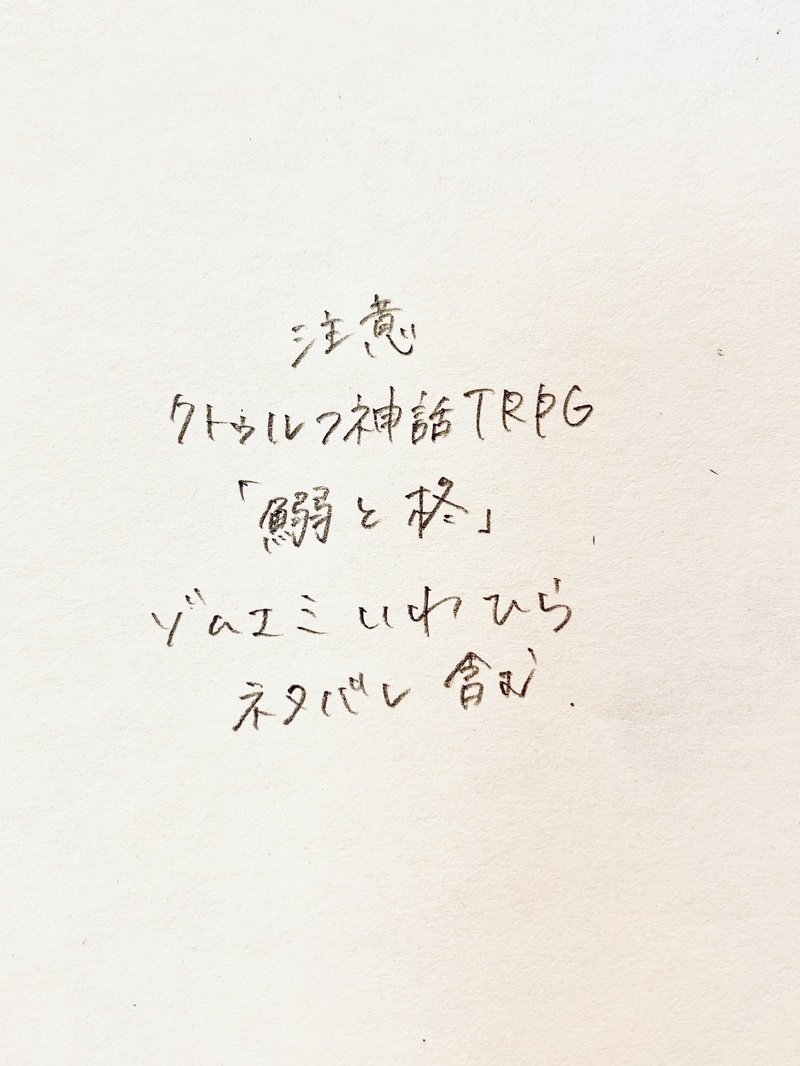 注意
クトゥルフ神話TRPG
「鰯と柊」
ゾムエミいわひら
ネタバレ含む.